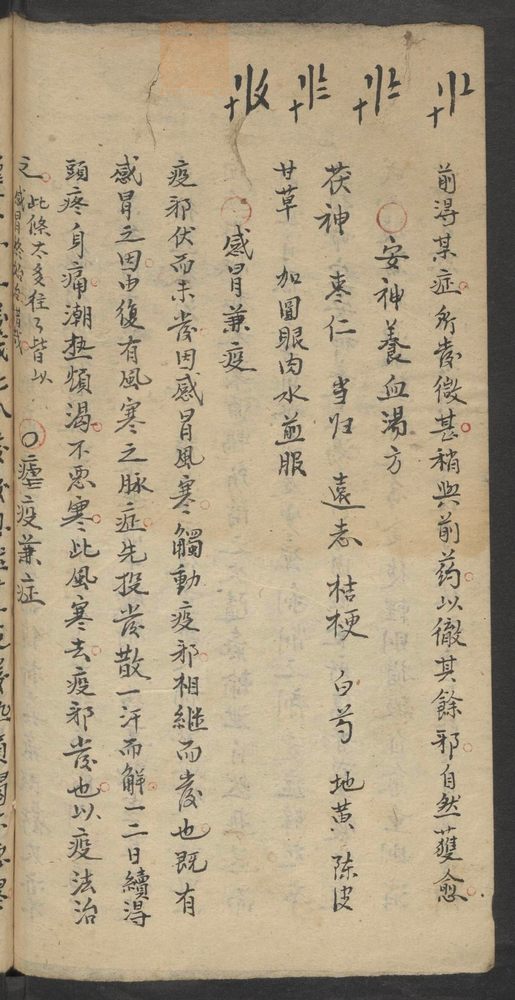 前得某症所發微甚稍與前药以徹其餘邪自然獲愈
安神養血湯方
茯神 枣仁 当归 遠志 桔梗 白芍 地黄 陈皮
甘草 加圓眼肉水煎服
感冒兼疫
疫邪伏而未發因感冒風寒觸動疫邪相継而發也既有
感冒之因由復有風寒之脉症先投發散一汗而解一二日續得
頭疼身痛潮热煩渴不悪寒此風寒去疫邪發也以疫法治
之
此條太多往々皆以
瘧疫兼症